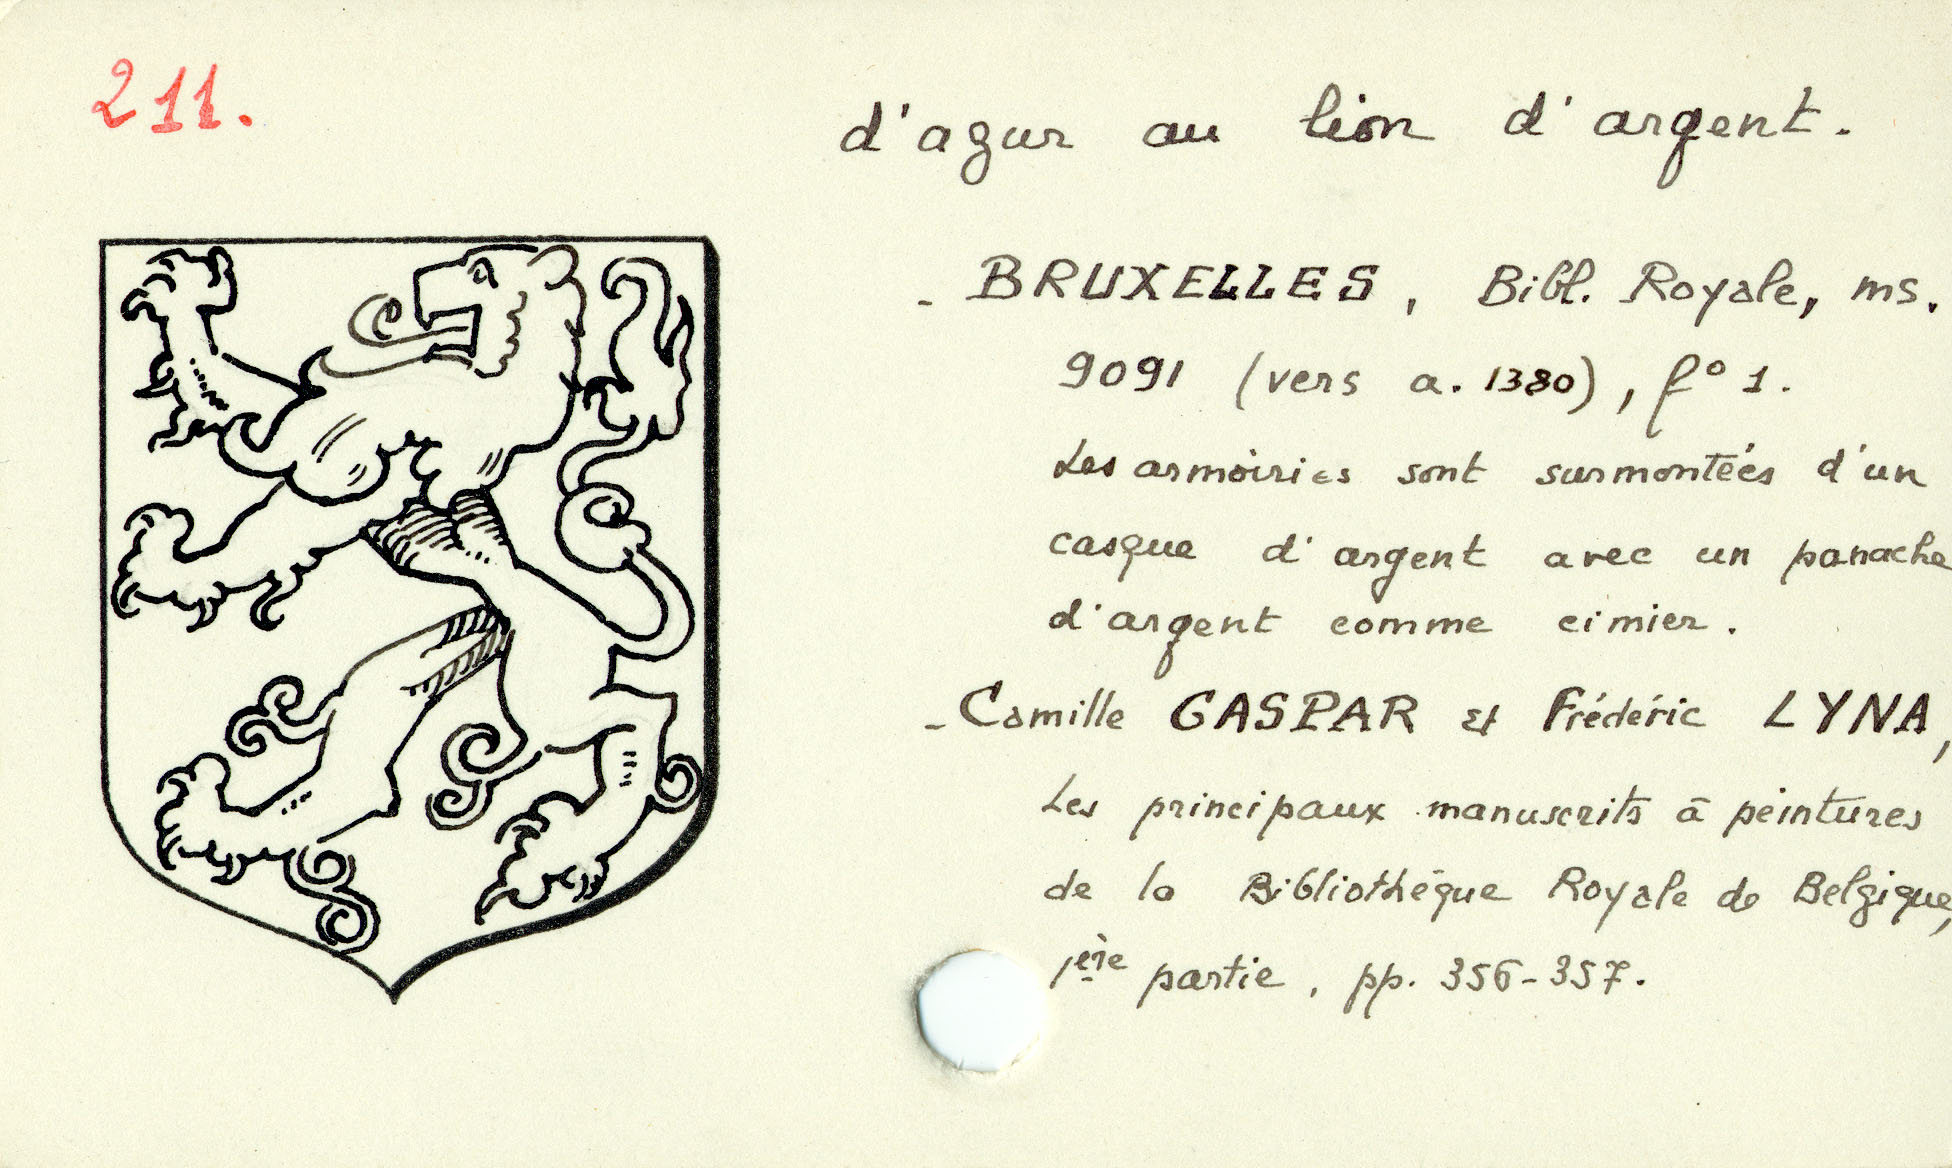 211.
d'azur au lion d'argent.
- BRUXELLES, Bibl. Royale, ms.
9091 (vers a. 1380), f° 1.
Les armoiries sont surmontées d'un
casque d'argent avec un panache
d'argent comme cimier.
- Camille GASPAR et Frédéric LYNA,
Les principaux manuscrits à peintures
de la Bibliothèque Royale de Belgique,
1ère partie, pp. 356-357.